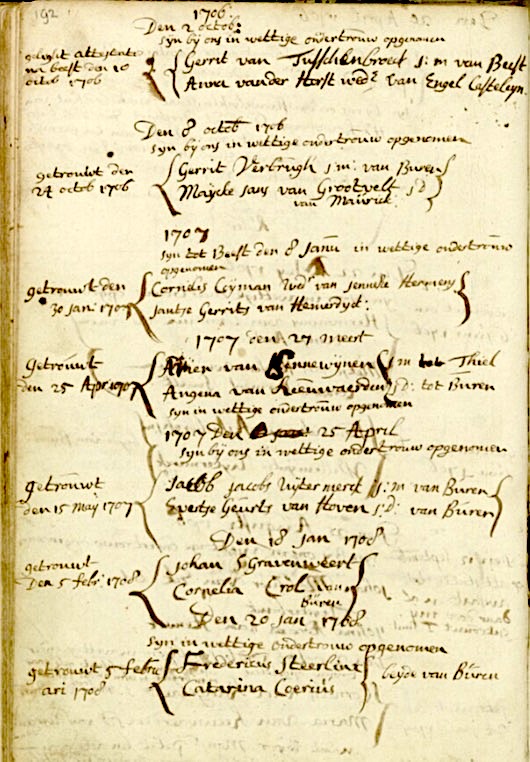 192
1706
Den 2 octob:
syn by ons in wettige ondertrouw opgenomen
attestatie
Beest den 10
octob 1706
Gerrit van Tusschenbroeck j: m van Beest
Anna vander Horst wed: van Engel Casteleyn
Den 8 octob 1706
syn by ons in wettige ondertrouw opgenomen
getrouwt den
24 octob 1706
Gerrit Verbrugh j:m: van Buren
Maijcke Jans van Grootvelt j:d
van Maurick
1707
syn tot Beest den 8 Janu in wettige ondertrouw
opgenomen
getrouwt den
30 Jan: 1707
Cornelis Cooyman wed: van Jenneke Hermens
Jantje Gerrits van Hemerdyck:
1707 den 27 meert
Getrouwt
den 25 Apr 1707
van Kennewijnen j:m tot Thiel
Angena van Reenwaerden j:d: tot Buren
syn in wettige ondertrouw opgenomen
1707 Den 25 April
syn by ons in wettige ondertrouw opgenomen
getrouwt
den 15 May 1707
Jacob Jacobs Uijtermerck j:m van Buren
Evertje Geurts van Hoven j:d: van Buren
Den 18 Jan 1708
getrouwt
Den 5 febr: 1708
Johan 's Gravenweert
Cornelia Crol van
Buren
Den 20 Jan 1708
syn in wettige ondertrouw opgenomen
getrouwt 5 febru
ari 1708
Fredericus Steerlinx
Catarina Coerius
beyde van Buren